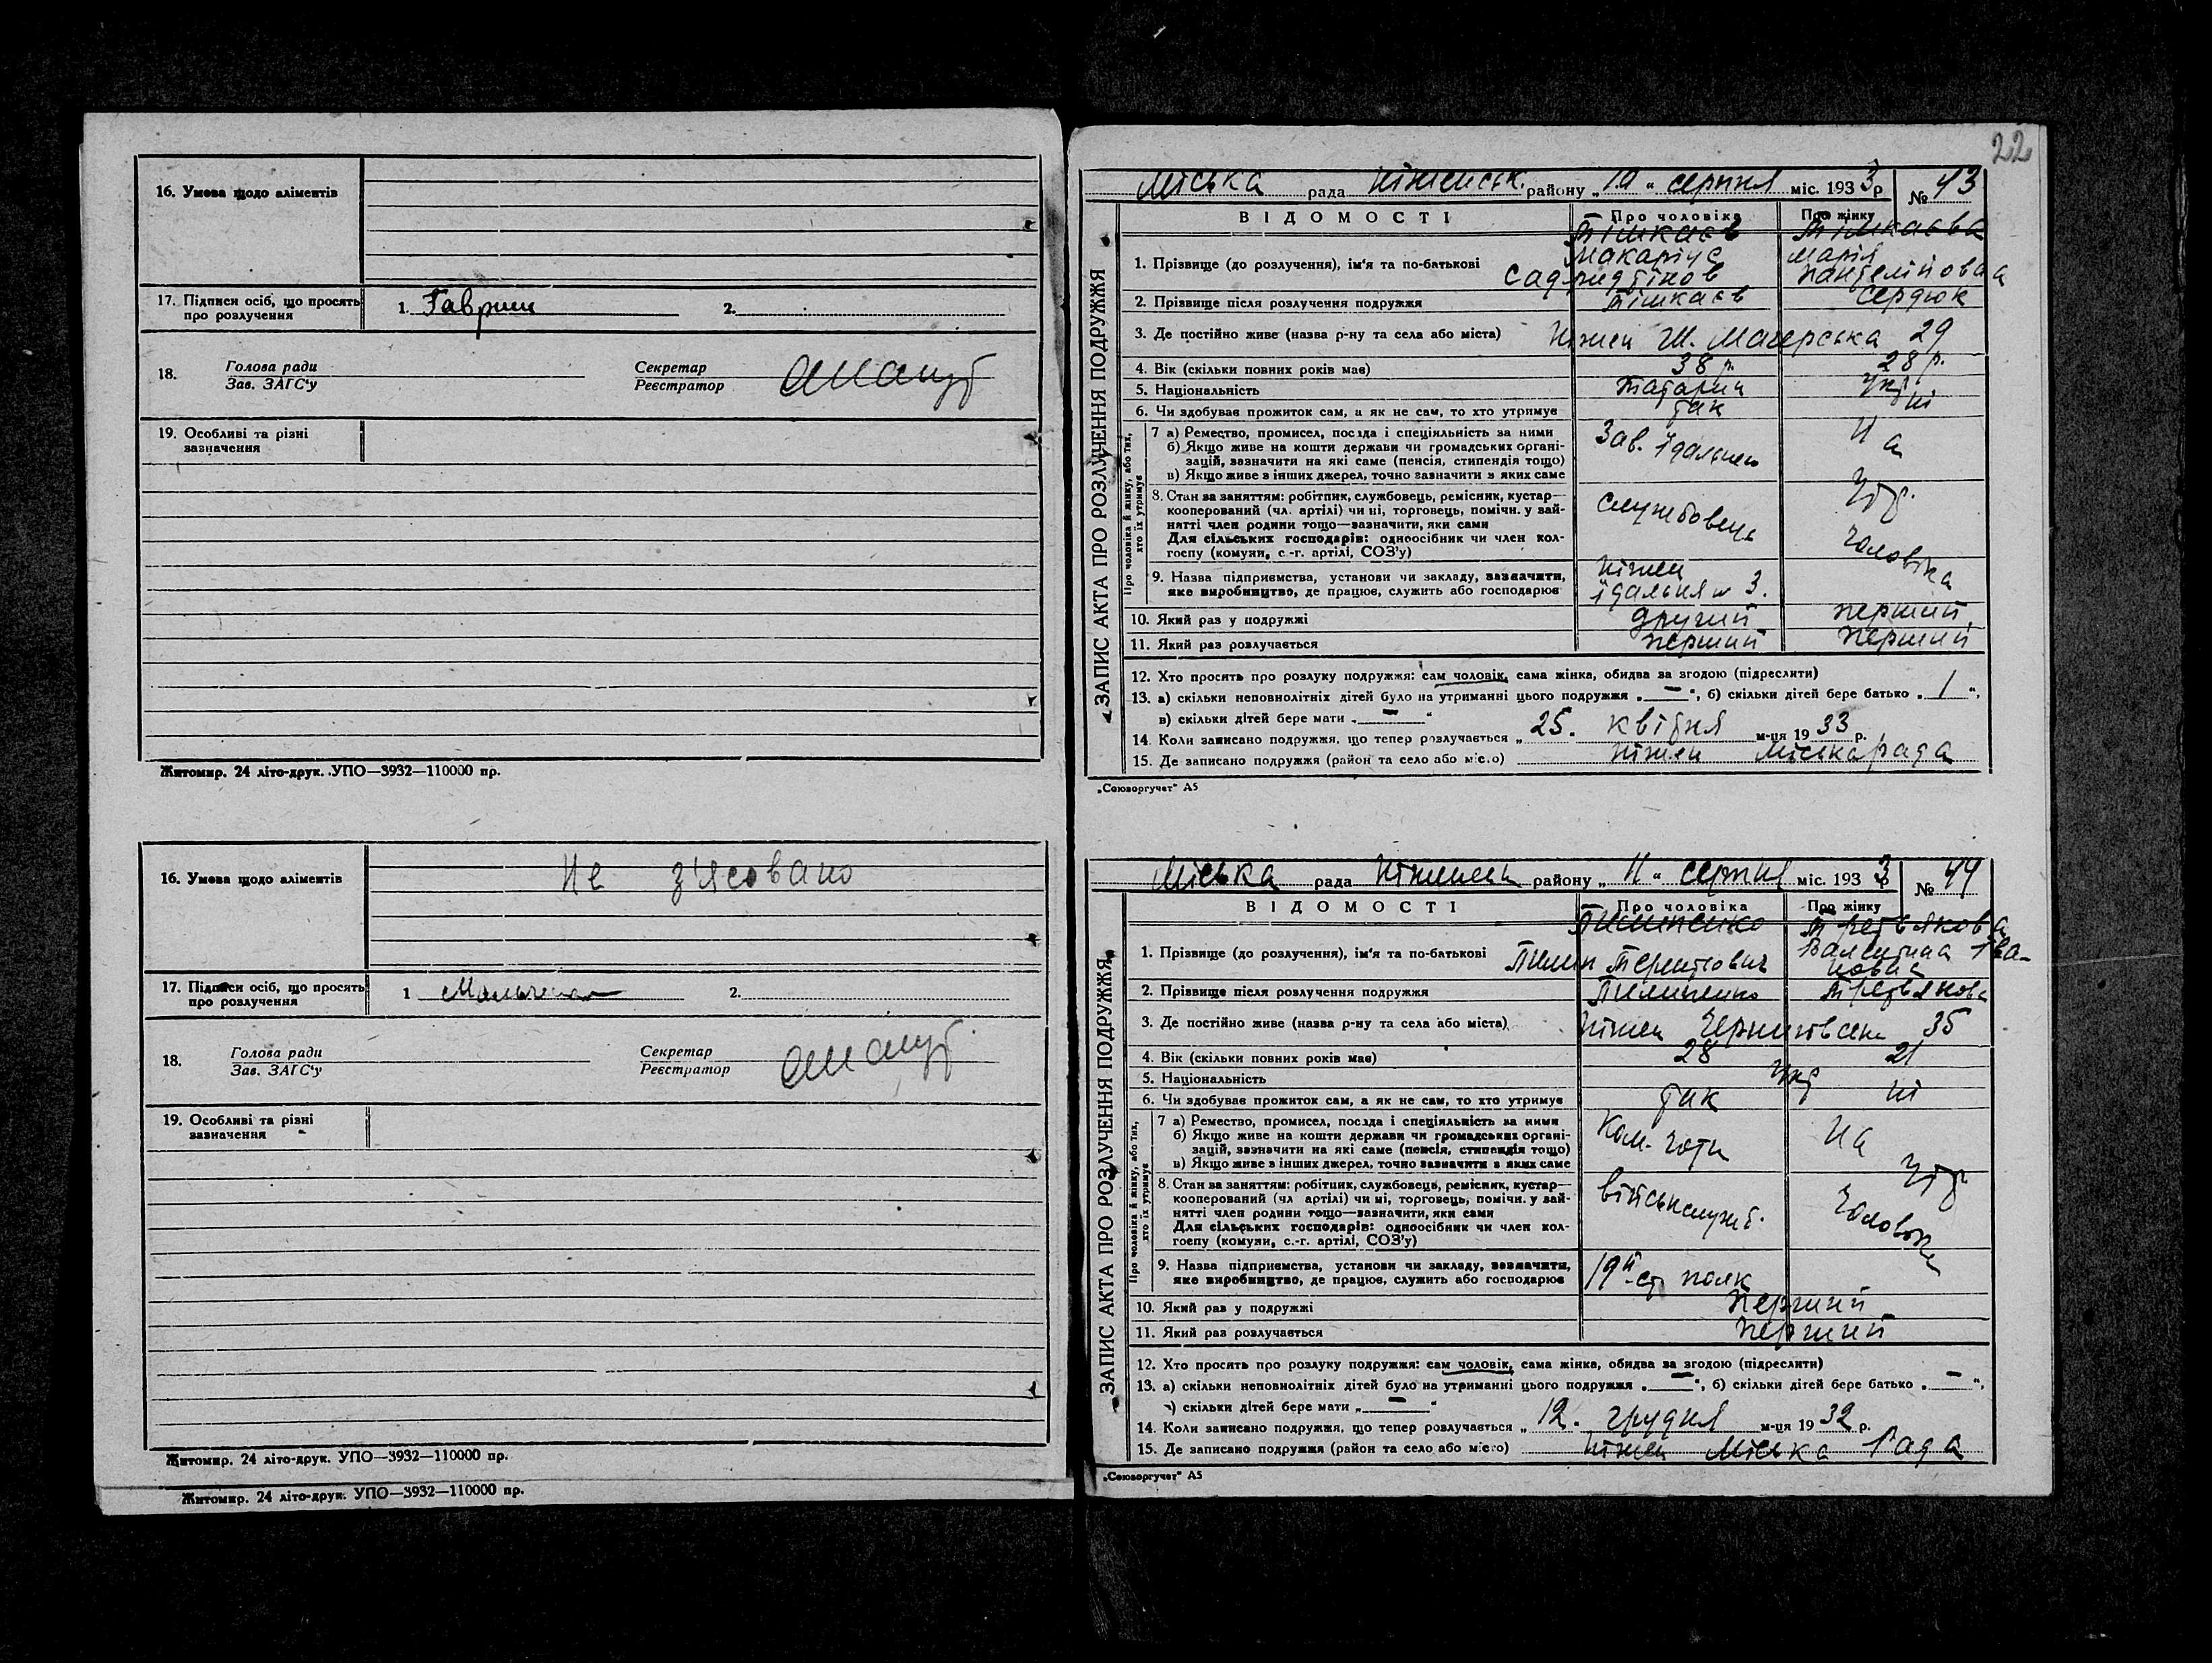 16. Умова щодо аліментів
17. Підписи осіб, що просять
про розлучення
1. Гаврищ 2.
18. Голова ради
Зав. ЗАГС'у
Секретар
Реєстратор
19. Особливі та різні
зазначення
Житомир. 24 літо-друк. УПО—3932—110000 пр.
16. Умова щодо аліментів
Не з'ясовано
17. Підписи осіб, що просять
про розлучення
1 2.
18. Голова ради
Зав. ЗАГС'у
Секретар
Реєстратор
19. Особливі та різні
зазначення
Житомир. 24 літо-друк. УПО—3932—110000 пр.
Житомир. 24 літо-друк. УПО—3932—110000 пр.
22
Міська рада Ніженськ. району „10" серпня міс. 1933 р № 43
ЗАПИС АКТА ПРО РОЗЛУЧЕННЯ ПОДРУЖЖЯ
ВІДОМОСТІ Про чоловіка Про жінку
1. Прізвище (до розлучення), ім'я та по-батькові
Тімкаєв Тімкаєва
Макаріус Марія
Садридтінов Пантелімовна
2. Прізвище після розлучення подружжя Тімкаєв Сердюк
3. Де постійно живе (назва р-ну та села або міста) Ніжен Ш. Магерська 29
4. Вік (скільки повних років має) 38 р. 28 р.
5. Національність татарин укр
6. Чи здобуває прожиток сам, а як не сам, то хто утримує так ні
Про чоловіка й жінку, або тих, хто їх утримує
7 а) Ремество, промисел, посада і спеціяльність за ними
б) Якщо живе на кошти держави чи громадських органі-
зацій, зазначити на які саме (пенсія, стипендія тощо)
в) Якщо живе з інших джерел, точно зазначити з яких саме
Зав. їдальнею На
8. Стан за заняттям: робітник, службовець, ремісник, кустар—
кооперований (чл. артілі) чи ні, торговець, помічн. у зай-
нятті член родини тощо—зазначити, яки сами
Для сільських господарів: одноосібник чи член кол-
госпу (комуни, с.-г. артілі, СОЗ'у)
службовець утр. чоловіка
9. Назва підприємства, установи чи закладу, зазначити,
яке виробництво, де працює, служить або господарює
Ніжен
їдальня № 3.
10. Який раз у подружжі другий перший
11. Який раз розлучається перший перший
12. Хто просить про розлуку подружжя: сам чоловік, сама жінка, обидва за згодою (підреслити)
13. а) скільки неповнолітніх дітей було на утриманні цього подружжя „—", б) скільки дітей бере батько „1",
в) скільки дітей бере мати „—"
14. Коли записано подружжя, що тепер розлучається „25. квітня м-ця 1933 р.
15. Де записано подружжя (район та село або місто) Ніжен Міська рада
„Союзоргучет" А5
Міська рада Ніженськ району „11" серпня міс. 1933 р № 44
ЗАПИС АКТА ПРО РОЗЛУЧЕННЯ ПОДРУЖЖЯ
ВІДОМОСТІ Про чоловіка Про жінку
1. Прізвище (до розлучення), ім'я та по-батькові
Пилипенко Третьякова
Пилип Терентіович Валентина Іва-
новна
2. Прізвище після розлучення подружжя Пилипенко Третьякова
3. Де постійно живе (назва р-ну та села або міста) Ніжен Чернигівськ 35
4. Вік (скільки повних років має) 28 21
5. Національність укр
6. Чи здобуває прожиток сам, а як не сам, то хто утримує так ні
Про чоловіка й жінку, або тих, хто їх утримує
7 а) Ремество, промисел, посада і спеціяльність за ними
б) Якщо живе на кошти держави чи громадських органі-
зацій, зазначити на які саме (пенсія, стипендія тощо)
в) Якщо живе з інших джерел, точно зазначити з яких саме
Ком. чоти На
8. Стан за заняттям: робітник, службовець, ремісник, кустар—
кооперований (чл артілі) чи ні, торговець, помічн. у зай-
нятті член родини тощо—зазначити, яки сами
Для сільських господарів: одноосібник чи член кол-
госпу (комуни, с.-г. артілі, СОЗ'у)
військслужб. утр чоловіка
9. Назва підприємства, установи чи закладу, зазначити,
яке виробництво, де працює, служить або господарює
19й ст полк
10. Який раз у подружжі перший
11. Який раз розлучається перший
12. Хто просить про розлуку подружжя: сам чоловік, сама жінка, обидва за згодою (підреслити)
13. а) скільки неповнолітніх дітей було на утриманні цього подружжя „—", б) скільки дітей бере батько „—",
в) скільки дітей бере мати „—"
14. Коли записано подружжя, що тепер розлучається „12. грудня м-ця 1932 р.
15. Де записано подружжя (район та село або місто) Ніжен Міська Рада
„Союзоргучет" А5